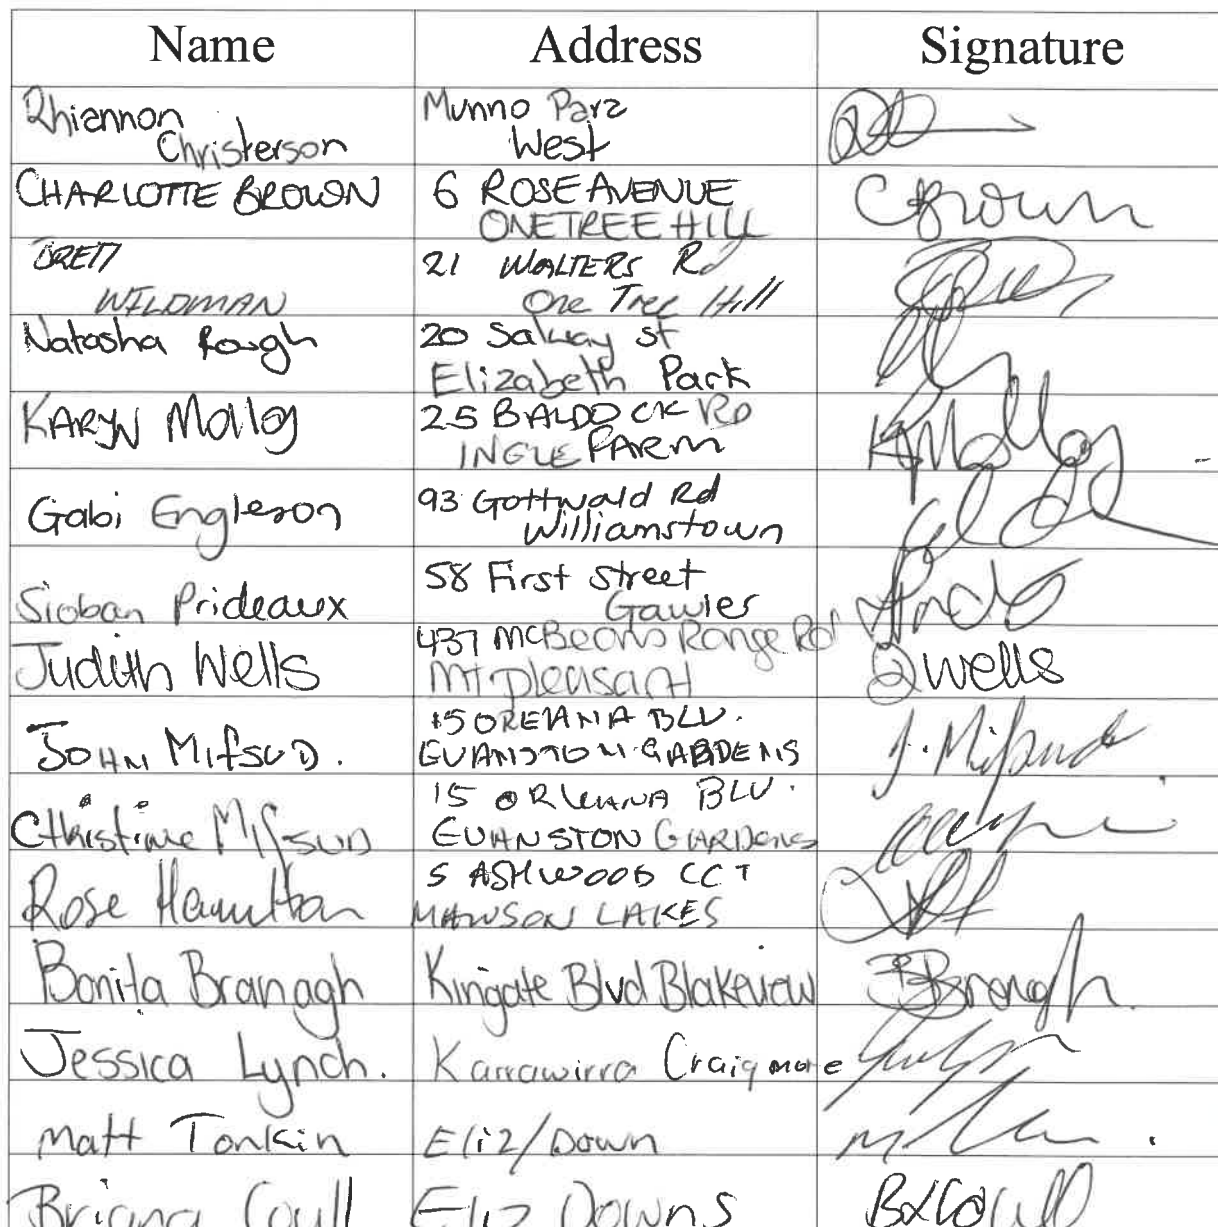 Name Address Signature
Rhiannon Christerson Munno Para West
CHARLOTTE BROWN 6 ROSE AVENUE ONE TREE HILL CBrown
BRETT WILDMAN 21 WALTERS Rd One Tree Hill
Natasha Rough 20 Salway st Elizabeth Park
KARYN Molloy 25 BALDOCK RD INGLE FARM KMolloy
Gabi Engleson 93 Gottwald Rd Williamstown
Sioban Prideaux 58 First Street Gawler
Judith Wells 437 McBeans Range Rd Mt pleasant JWells
JOHN MIFSUD. 15 ORLEANA BLV. EVANSTON GARDENS J. Mifsud
CHristine MIFSUD 15 ORLEANA BLV. EVANSTON GARDENS
Rose Hamilton 5 ASHWOOD CCT MAWSON LAKES
Bonita Branagh Kingate Blvd Blakeview BBranagh.
Jessica Lynch. Karrawirra Craigmore
Matt Tonkin Eliz/Down
Briana Coull Eliz Downs